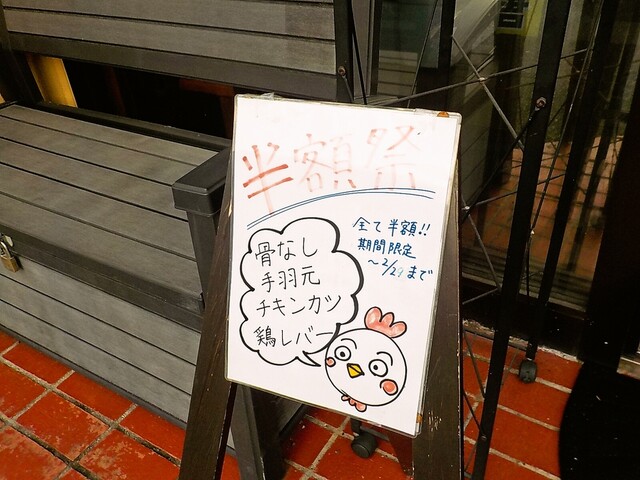 半額祭
全て半額!!
期間限定
～2/29まで
骨なし
手羽元
チキンカツ
鶏レバー